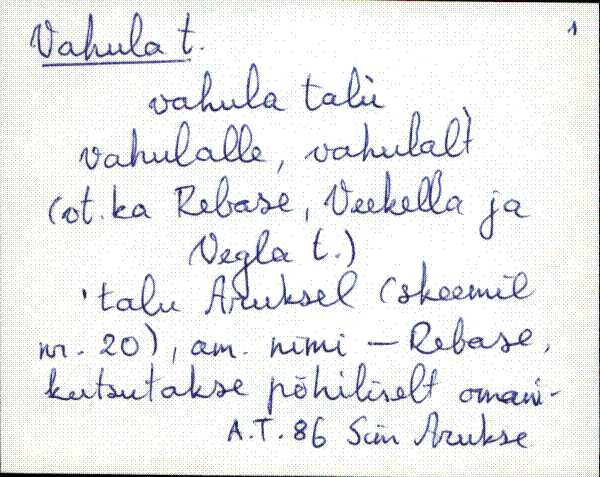 Vahula t.
1
vahula talù
vahulalle, vahulalt
(vt. ka Rebase, Veekella ja
Vegla t.)
'talu Aruksel (skeemil
nr. 20), am. nimi — Rebase,
kutsutakse põhiliselt omani-
A.T. 86 Sim Arukse